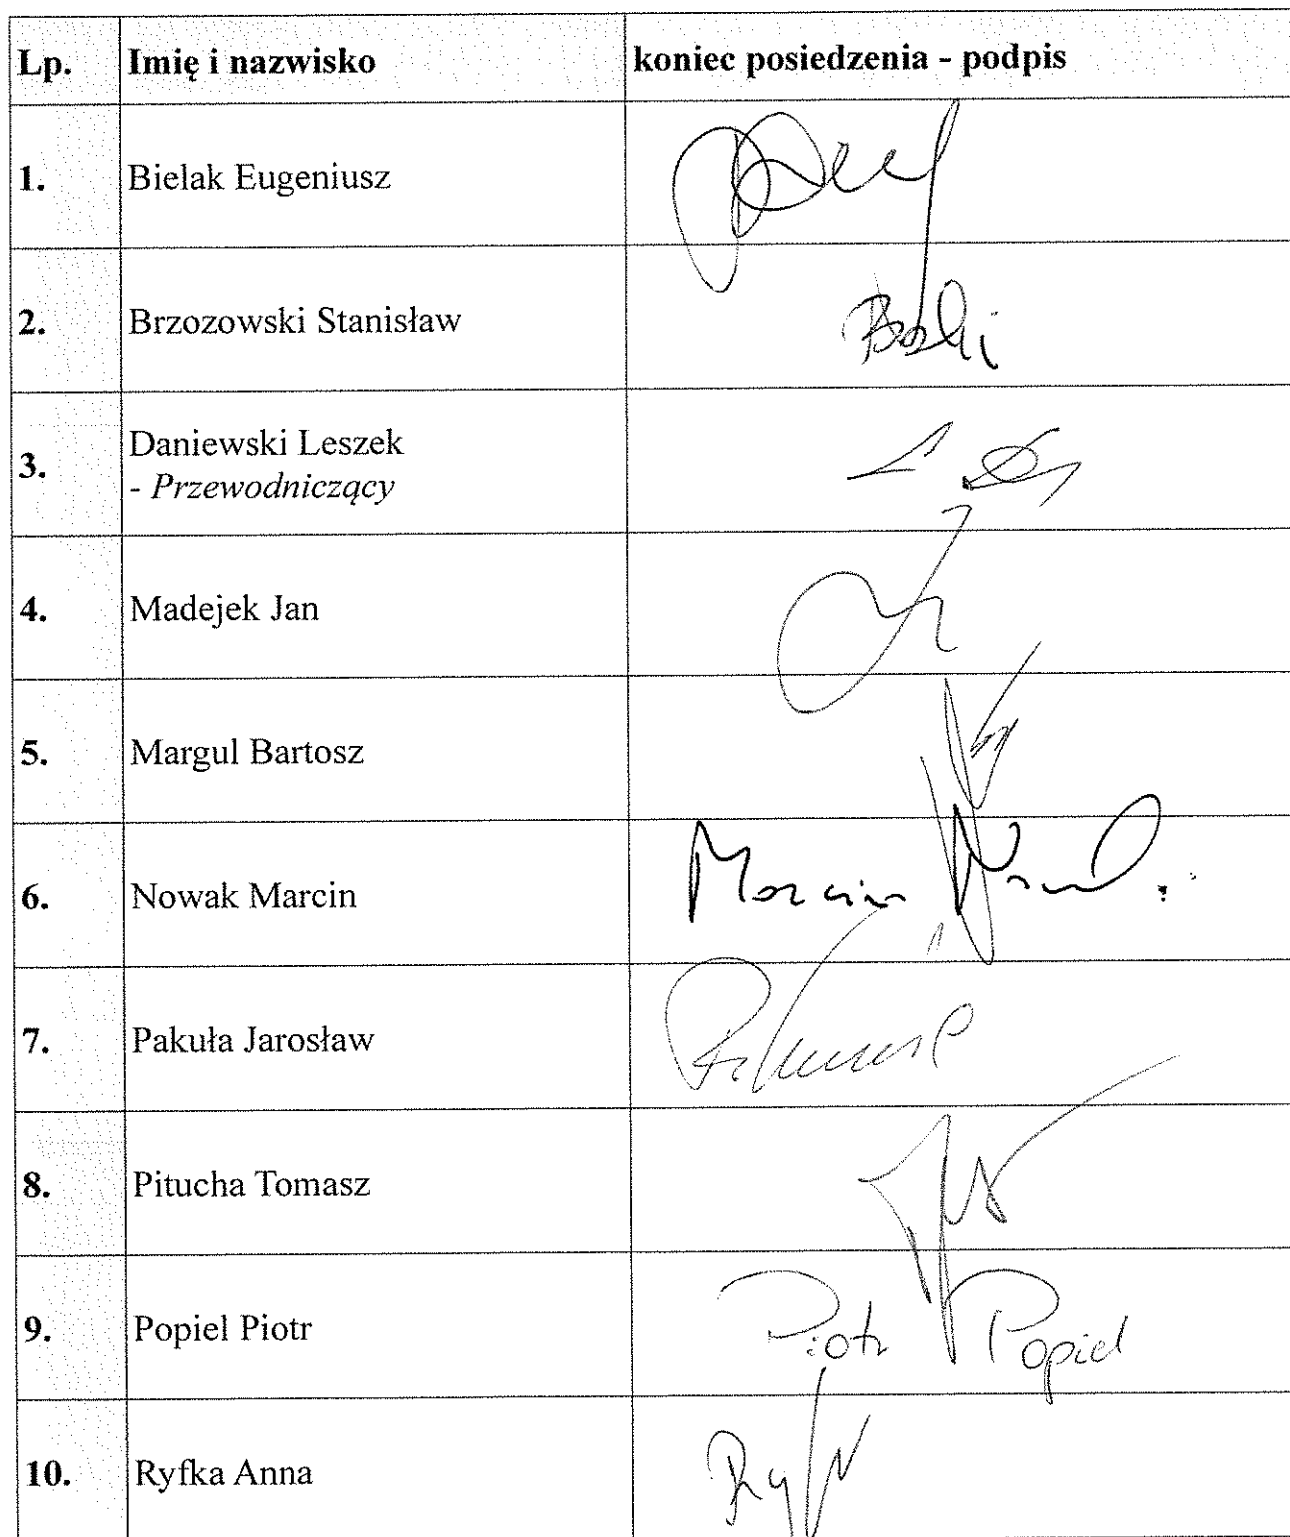 Lp. Imię i nazwisko koniec posiedzenia - podpis
1. Bielak Eugeniusz
2. Brzozowski Stanisław
3. Daniewski Leszek
- Przewodniczący
4. Madejek Jan
5. Margul Bartosz
6. Nowak Marcin Marcin
7. Pakuła Jarosław
8. Pitucha Tomasz
9. Popiel Piotr Piotr Popiel
10. Ryfka Anna